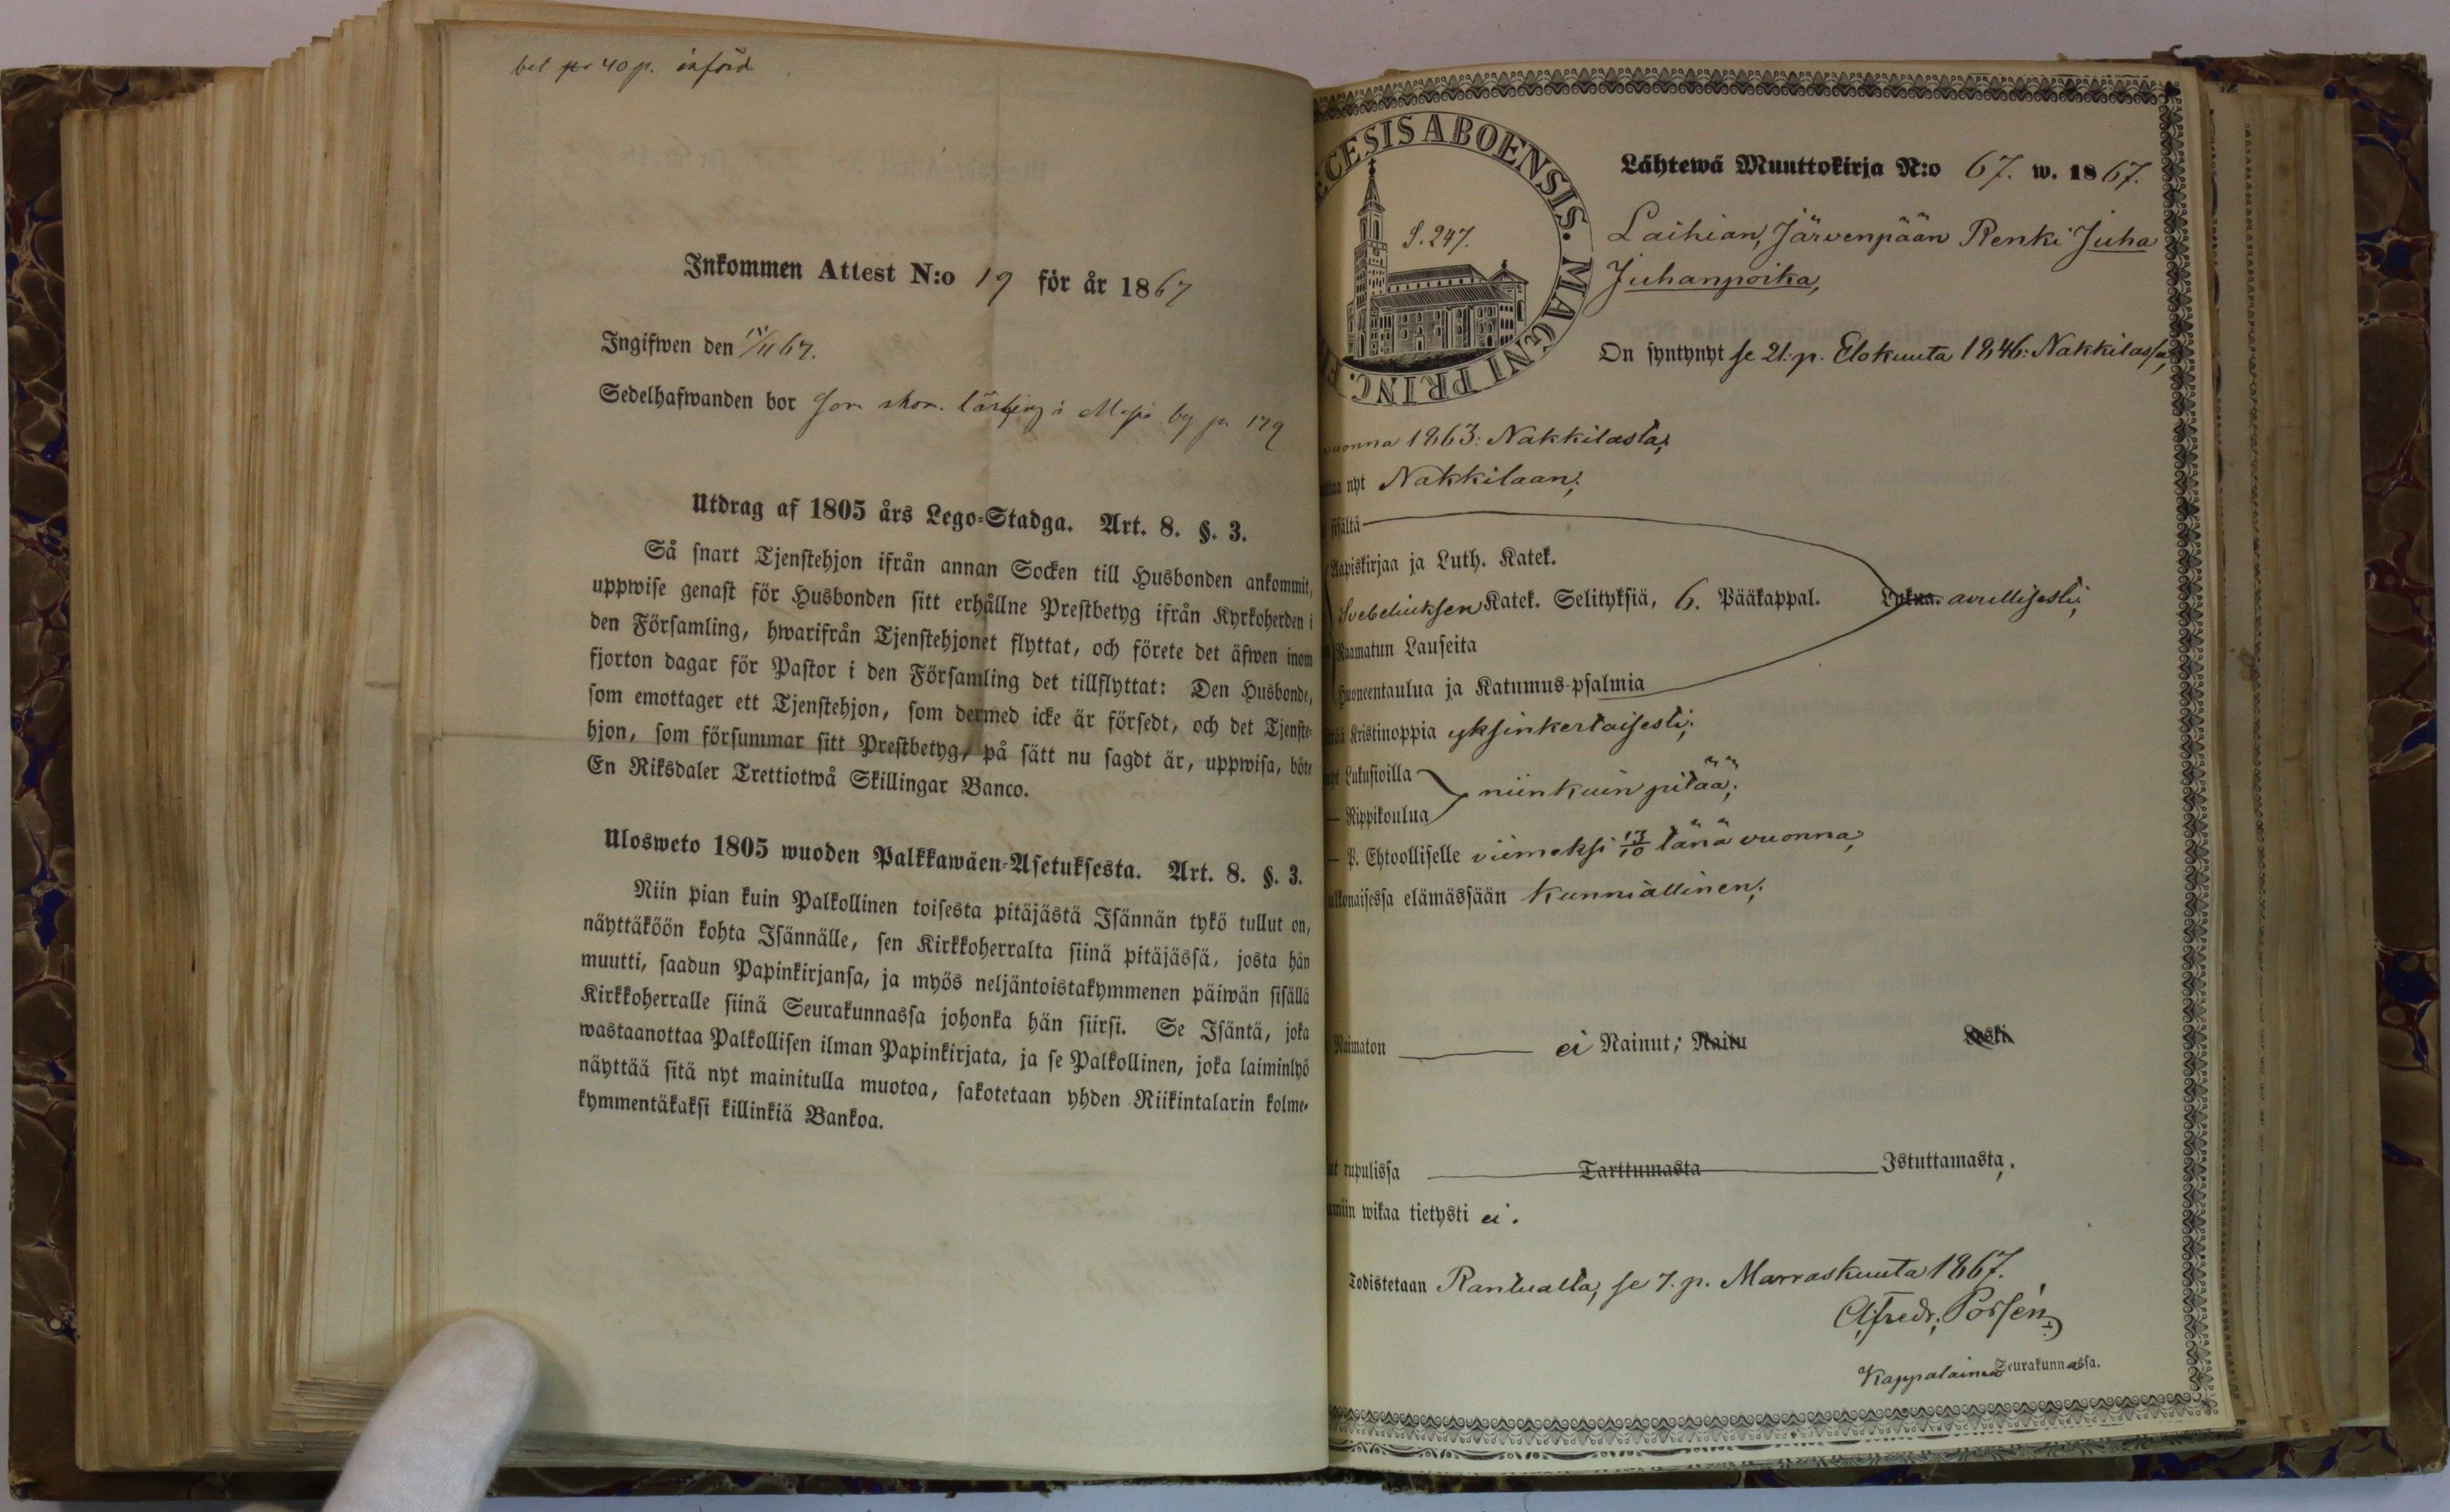 bet pr 40 p. införd
Inkommen Attest N:o 19 för år 1867
Ingifwen den 67.
Sedelhafwanden bor som skom. lärling i by p. 179
Utdrag af 1805 års Lego-Stadga. Art. 8. §. 3.
Så snart Tjenstehjon ifrån annan Socken till Husbonden ankommit,
uppwise genast för Husbonden sitt erhållne Prestbetyg ifrån Kyrkoherden i
den Församling, hwarifrån Tjenstehjonet flyttat, och förete det äfwen inom
fjorton dagar för Pastor i den Församling det tillflyttat: Den Husbonde,
som emottager ett Tjenstehjon, som dermed icke är försedt, och det Tjenste-
hjon, som försummar sitt Prestbetyg, på sätt nu sagdt är, uppwisa, böte
En Riksdaler Trettiotwå Skillingar Banco.
Ulosweto 1805 wuoden Palkkawäen-Asetuksesta. Art. 8. §. 3.
Niin pian kuin Palkollinen toisesta pitäjästä Isännän tykö tullut on,
näyttäköön kohta Isännälle, sen Kirkkoherralta siinä pitäjässä, josta hän
muutti, saadun Papinkirjansa, ja myös neljäntoistakymmenen päiwän sisällä
Kirkkoherralle siinä Seurakunnassa johonka hän siirsi. Se Isäntä, joka
wastaanottaa Palkollisen ilman Papinkirjata, ja se Palkollinen, joka laiminlyö
näyttää sitä nyt mainitulla muotoa, sakotetaan yhden Riikintalarin kolme-
kymmentäkaksi killinkiä Bankoa.
ECESIS ABOENSIS. MAGNI PRINC. F
S. 247.
Lähtewä Muuttokirja N:o 67. w. 1867.
Laihian, Järvenpään Renki Juha
Juhanpoika,
On syntynyt se 21. p. Elokuuta 1846: Nakkilassa,
vuonna 1863: Nakkilasta,
taa nyt Nakkilaan,
sisältä
Aapiskirjaa ja Luth. Katek.
Svebeliuksen Katek. Selityksiä, 6. Pääkappal. Lukua. avullisesti;
Raamatun Lauseita
Huoneentaulua ja Katumus-psalmia
Kristinoppia yksinkertaisesti;
yt Lukusioilla
— Rippikoulua niinkuin pitää;
— P. Ehtoolliselle viimeksi 13/10 tänä vuonna;
ulkonaisessa elämässään kunniallinen;
Naimaton ei Nainut; Naitu Leski
ut rupulissa Tarttumasta Istuttamasta,
miin wikaa tietysti ei.
Todistetaan Rantualla, se 7. p. Marraskuuta 1867.
Alfredr. Porsén
Kappalainen Seurakunnassa.